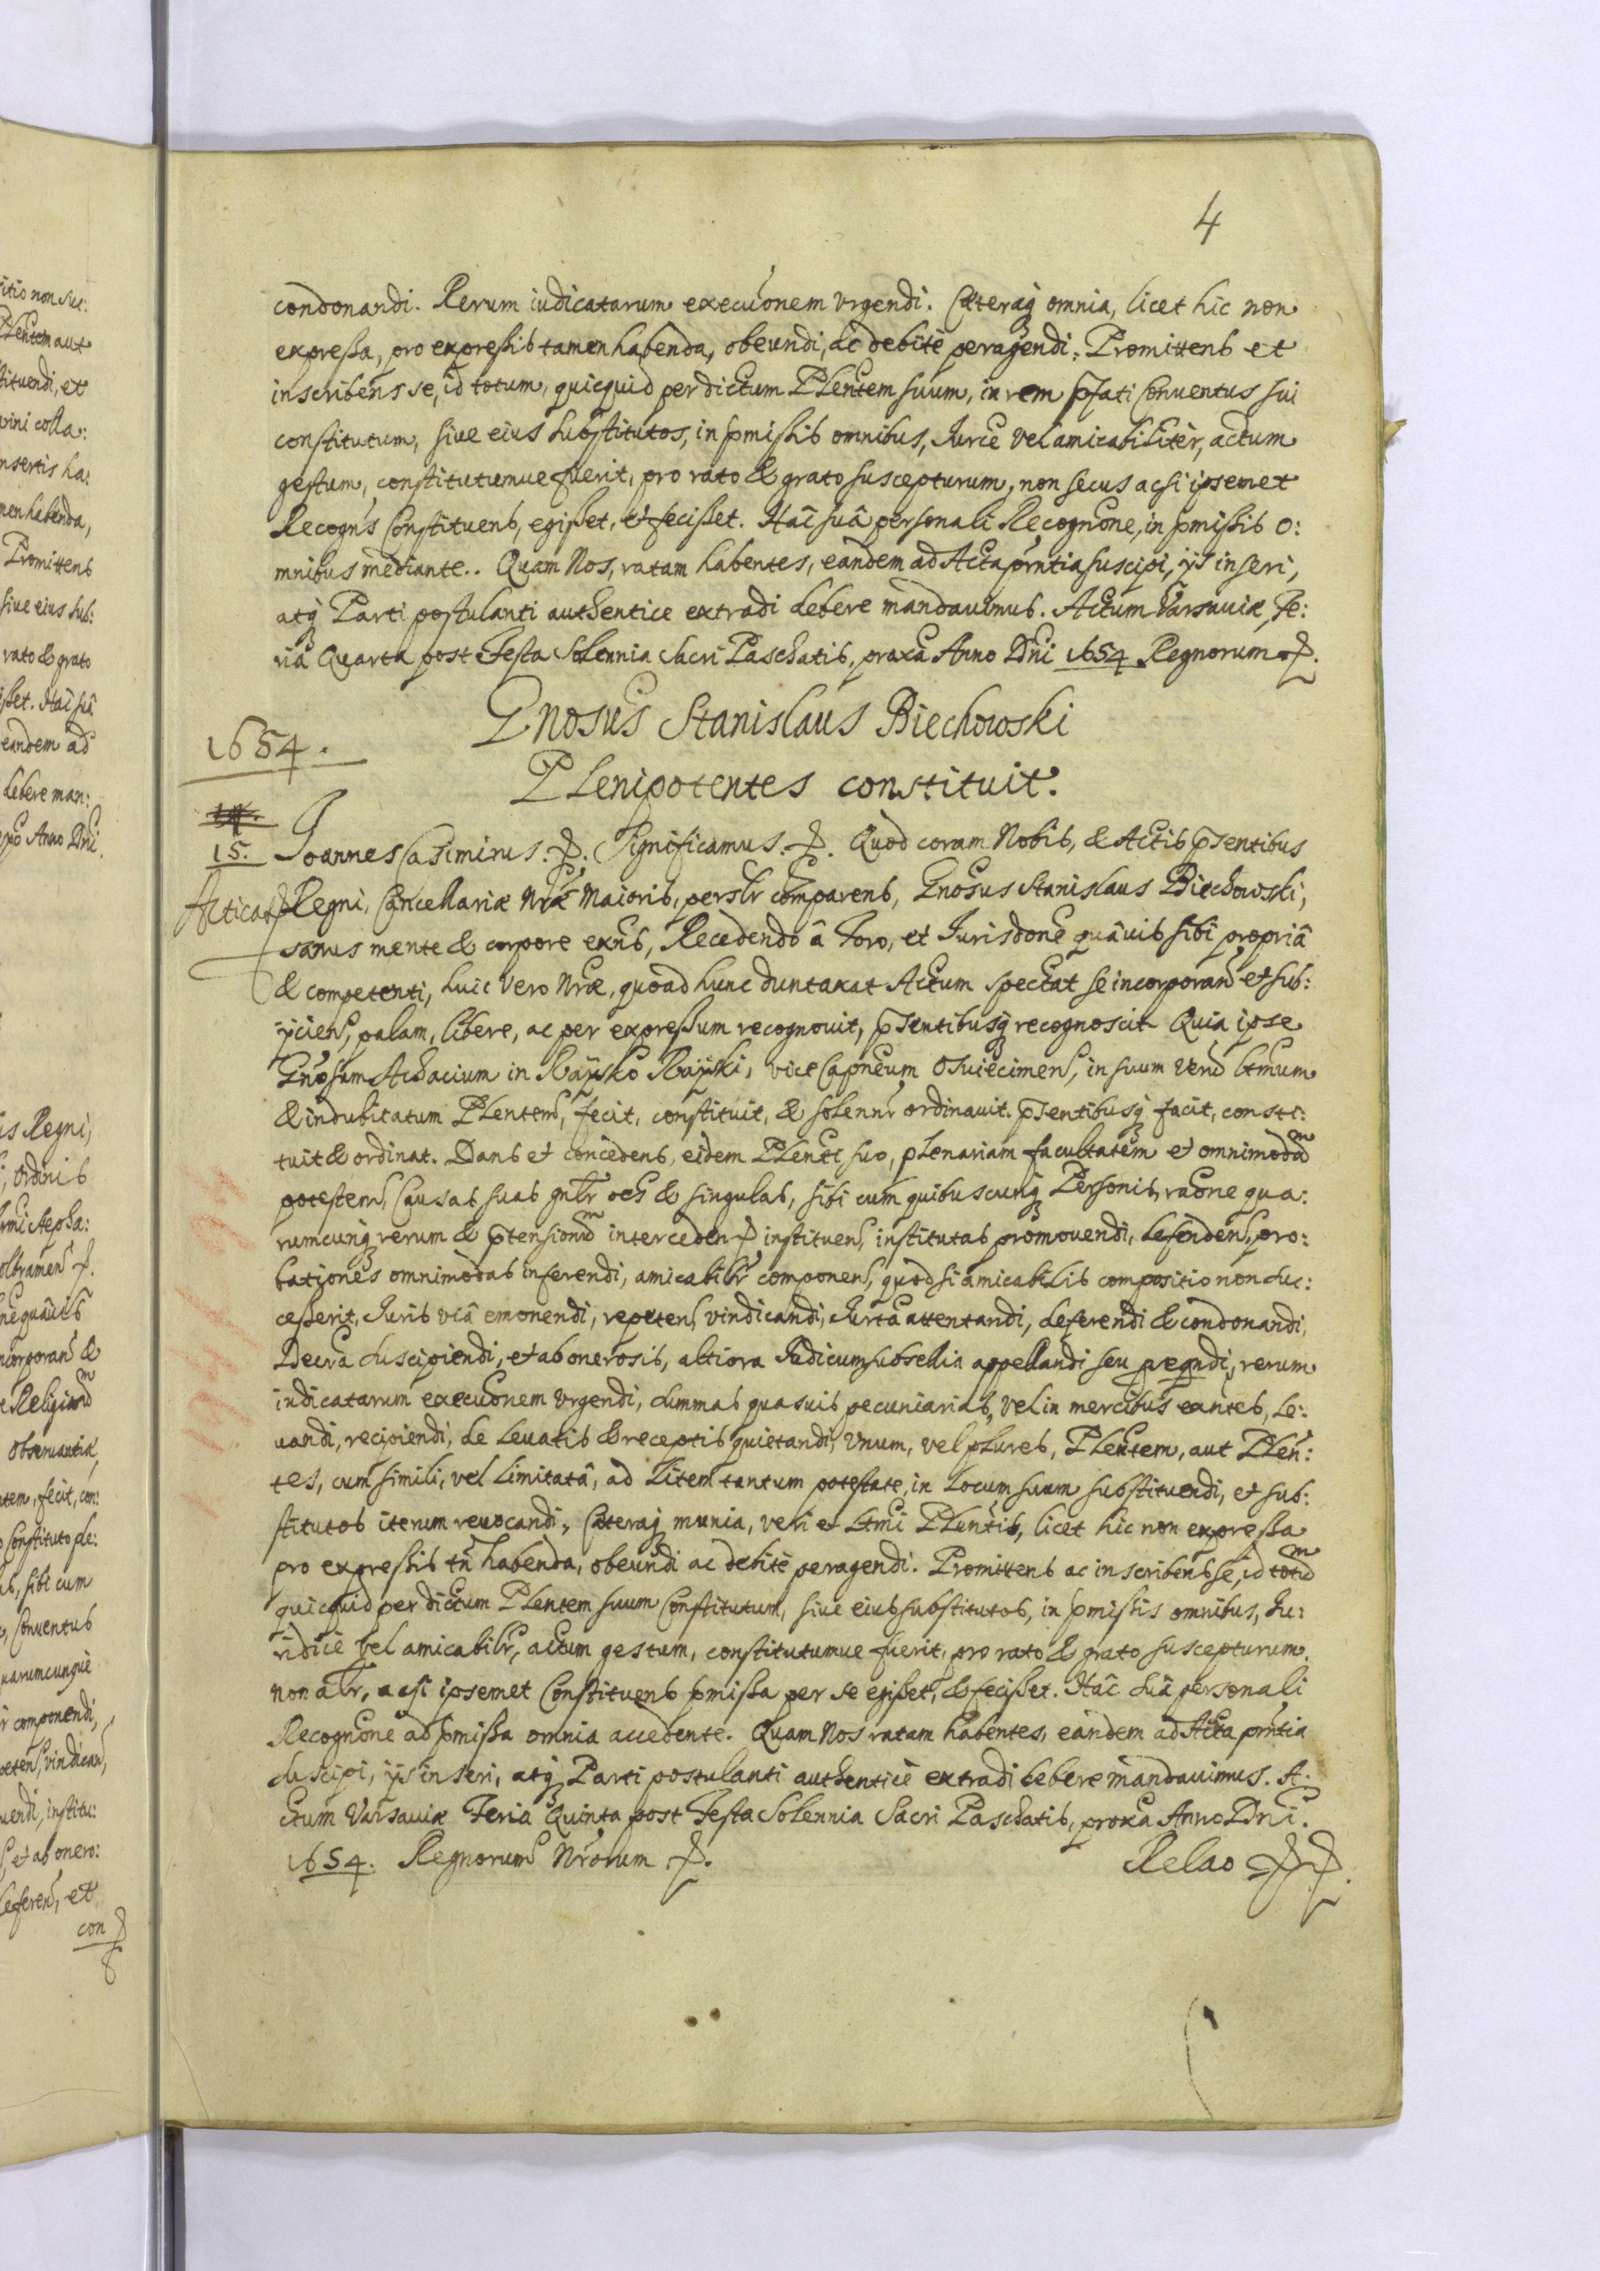 4
condonandi. Rerum iudicatarum execuonem vrgendi. Cæteraq omnia, licet hic non
expressa, pro expressis tamen habenda, obeundi, ac debitè peragendi. Promittens et
inscribens se, id totum, quicquid per dictum Plentem suum, in rem pfati Conuentus sui
constitutum, siue eius Substitutos, in pmissis omnibus, Iurce vel amicabilitèr, actum
gestum, constitutumue fuerit, pro rato & grato suscepturum, non secus acsi ipsemet
Recogns Constituens, egisset, et fecisset. Hac suâ personali Recognone, in pmissis o:
mnibus mediante. Quam Nos, ratam habentes, eandem ad Acta prntia suscipi, ijs inseri,
atq Parti postulanti authentice extradi debere mandauimus. Actum Varsauiæ, Fe:
riâ Quarta post Festa Solennia Sacri Paschatis, proxa Anno Dni 1654 Regnorum
Gnosus Stanislaus Biechowski
Plenipotentes constituit.
1654.
14.
15.
Ioannes Casimirus. Significamus. Quod coram Nobis, & Actis psentibus
Regni, Cancellariæ Nræ Maioris, perslr comparens, Gnosus Stanislaus Biechowski,
sanus mente & corpore exns, Recedendo â Foro, et Jurisdone quâuis sibi propriâ
& competenti, huic vero Nræ, quoad hunc duntaxat Actum spectat se incorporand et sub:
ijciens, palam, libere, ac per expressum recognouit, psentibusq recognoscit Quia ipse
Gnosum Achacium in Raysko Rayski, vice Capneum Osuiecimens, in suum verum ltmum
& indubitatum Plentem, fecit, constituit, & solennr ordinauit. psentibusq facit, consti:
tuit & ordinat. Dans et concedens, eidem Plenti suo, plenariam facultatem et omnimodam
potestem, Causas suas gnlr oes & singulas, sibi cum quibuscunq Personis, raone qua:
rumcunq rerum & ptensionum interceden instituen, institutas promouendi, defenden, pro:
bationes omnimodas inferendi, amicabilr componen, quod si amicabilis compositio non suc:
cesserit, Iuris viâ emonendi, repeten, vindicandi, Iurta attentandi, deferendi & condonandi,
Decra suscipiendi, et ab onerosis, ad altiora Iudicium subsellia appellandi seu ndi, rerum
iudicatarum execuonem vrgendi, summas quasuis pecuniarias, vel in mercibus exntes, le:
uandi, recipiendi, de leuatis & receptis quietandi, vnum, vel plures, Plentem, aut Plen:
tes, cum simili, vel limitatâ, ad litem tantum potestate, in locum suum substituendi, et sub:
stitutos iterum reuocandi. Cæteraq munia, veri et ltmi Plentis, licet hic non expressa
pro expressis tn habenda, obeundi ac debitè peragendi. Promittens ac inscribens se, id totum
quicquid per dictum Plentem suum Constitutum, siue eius substitutos, in pmissis omnibus, Iu:
ridice vel amicabilr, actum gestum, constitutumue fuerit, pro rato & grato suscepturum.
non alr, acsi ipsemet Constituens pmissa per se egisset, & fecisset. Hâc suâ personali
Recognone ad pmissa omnia accedente. Quam Nos ratam habentes, eandem ad Acta prntia
suscipi, ijs inseri, atq Parti postulanti authenticè extradi debere mandauimus. A:
ctum Varsauiæ Feria Quinta post Festa Solennia Sacri Paschatis, proxa Anno Dni
1654. Regnorum Nrorum
Relao